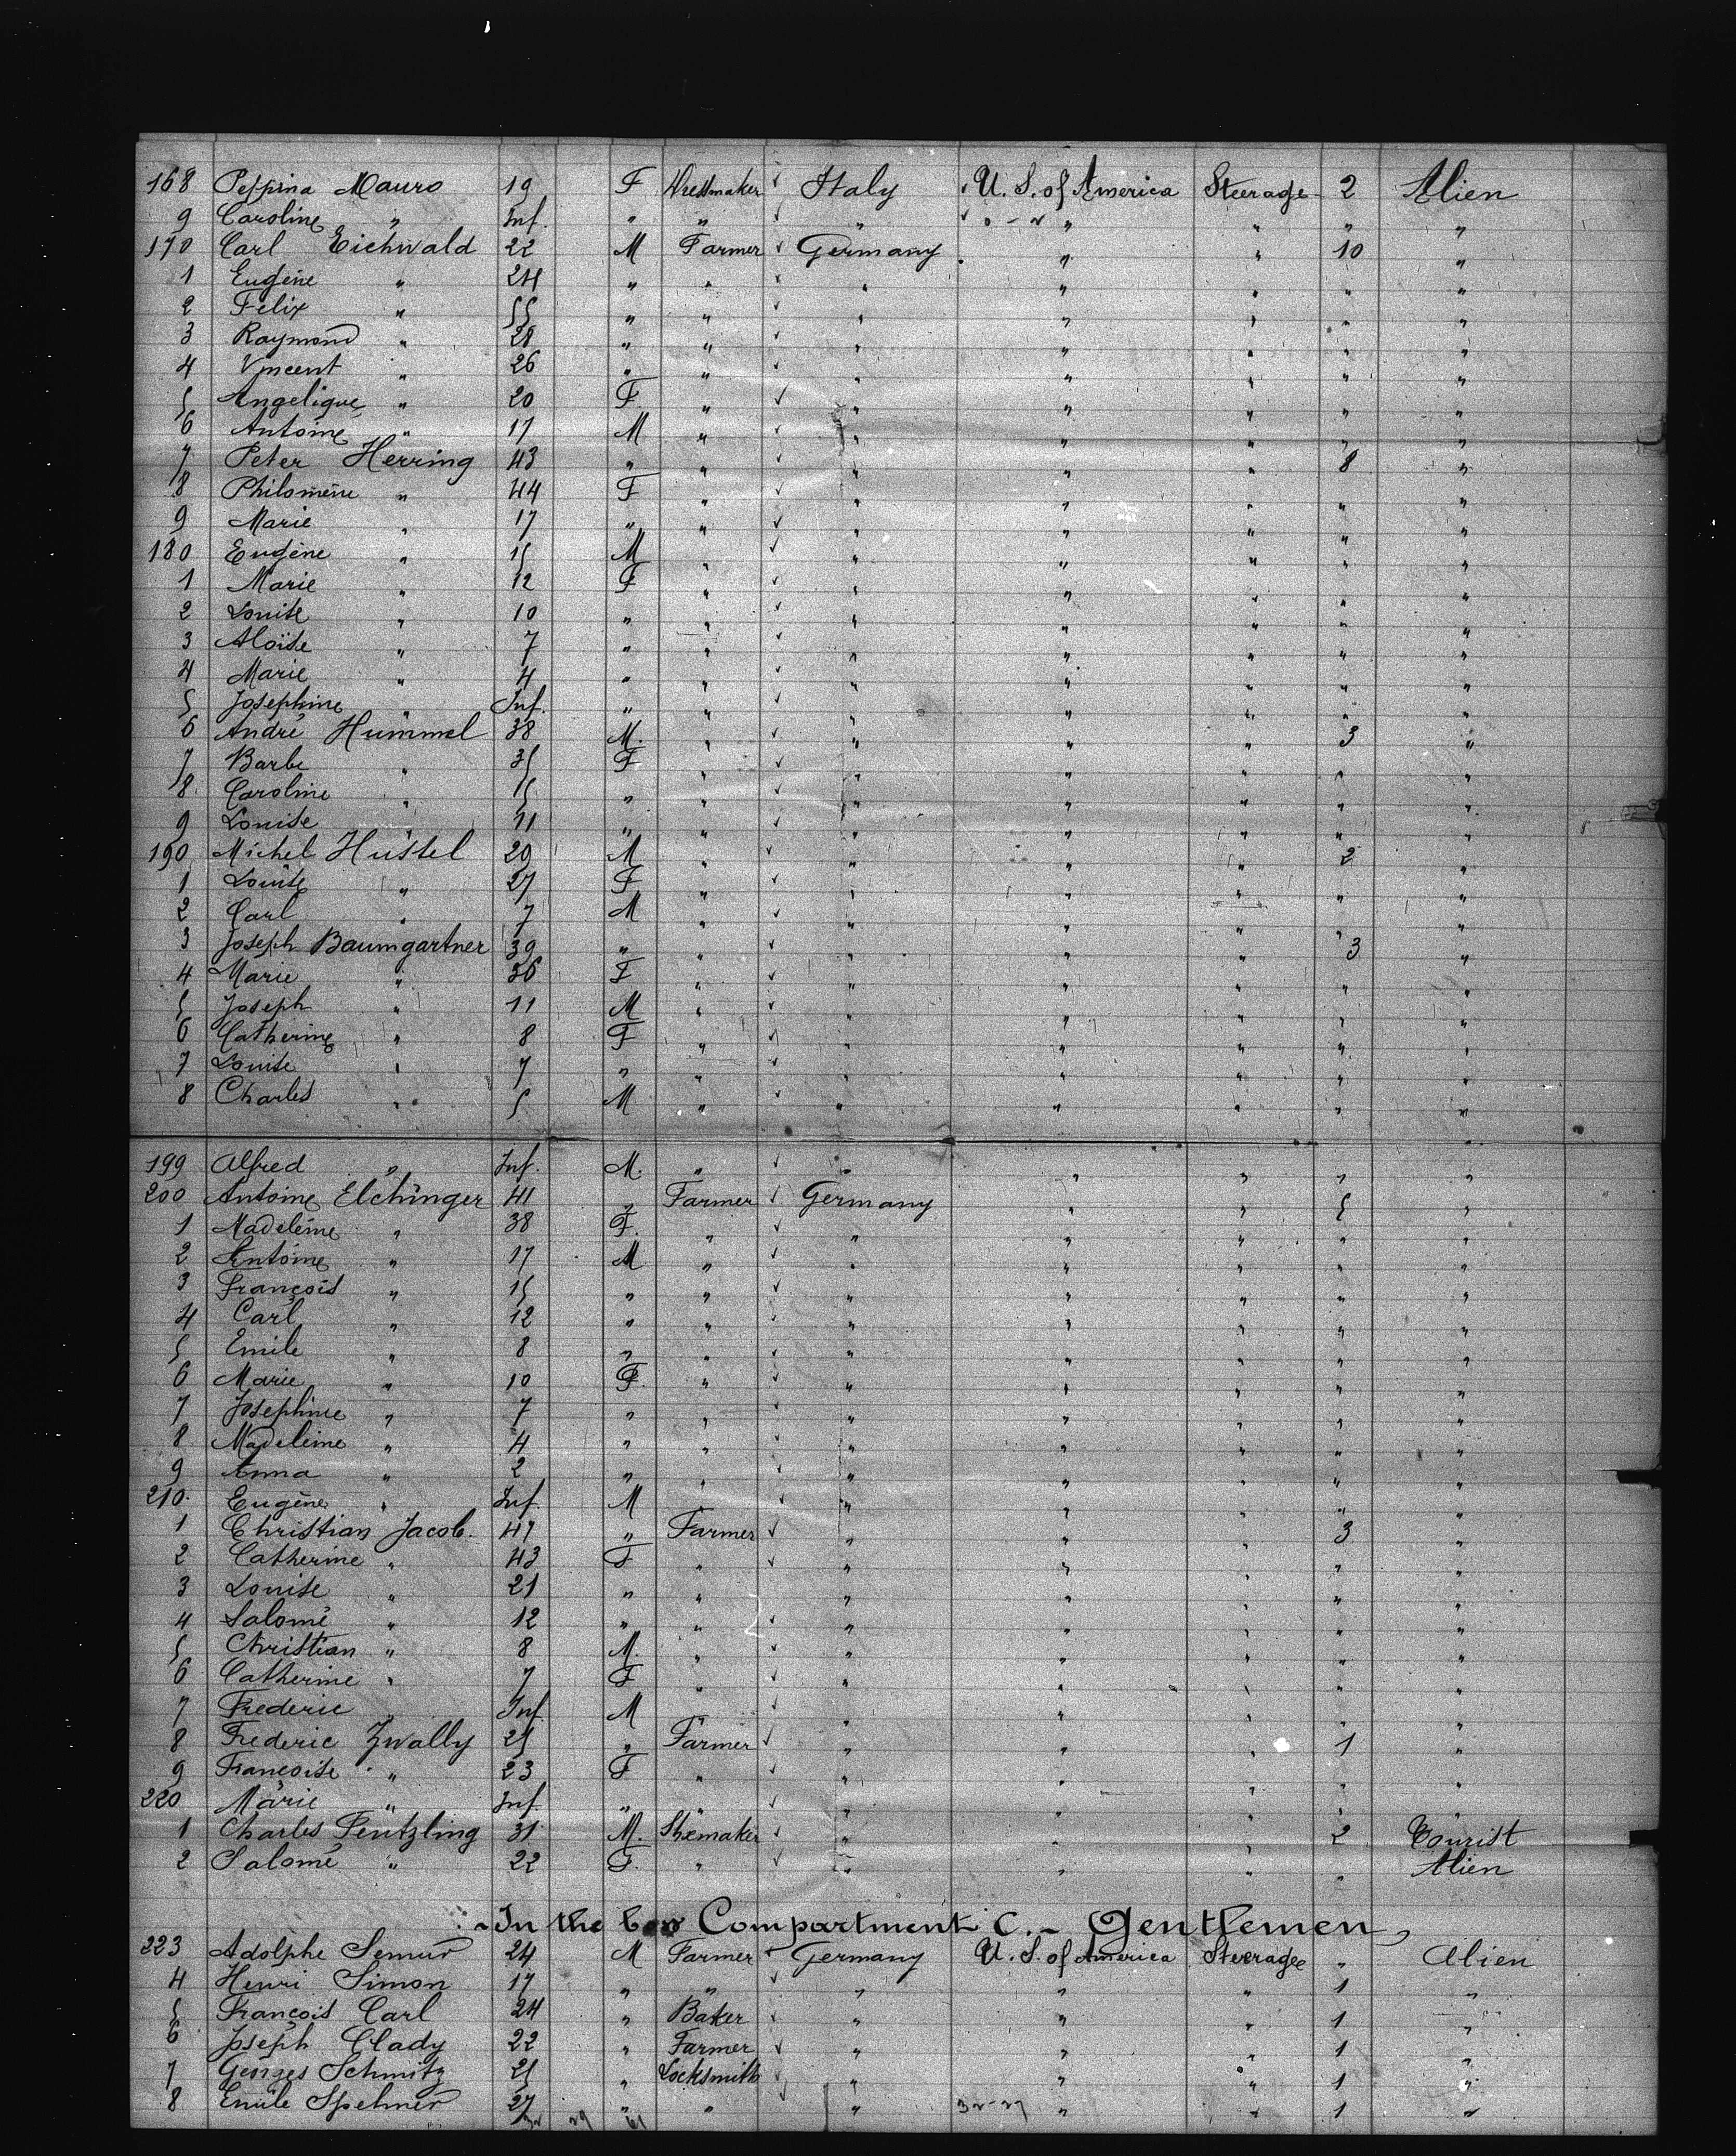 168 Peppina Mauro 19 F Dressmaker ✓ Italy U. S. of America Steerage 2 Alien
9 Caroline " Inf. " " ✓ " " " " "
170 Carl Eichwald 22 M Farmer ✓ Germany " " 10 "
1 Eugène " 24 " " ✓ " " " " "
2 Felix " 55 " " ✓ " " " " "
3 Raymond " 28 " " ✓ " " " " "
4 Vincent " 26 " " ✓ " " " " "
5 Angelique " 20 F " ✓ " " " " "
6 Antoine " 17 M " ✓ " " " " "
7 Peter Herring 43 " " ✓ " " " 8 "
8 Philomène " 44 F " ✓ " " " " "
9 Marie " 17 " " ✓ " " " " "
180 Eugène " 15 M " ✓ " " " " "
1 Marie " 12 F " ✓ " " " " "
2 Louise " 10 " " ✓ " " " " "
3 Aloïse " 7 " " ✓ " " " " "
4 Marie " 4 " " ✓ " " " " "
5 Josephine " Inf. " " ✓ " " " " "
6 André Hummel 38 M. " ✓ " " " 3 "
7 Barbe " 35 F " ✓ " " " " "
8 Caroline " 15 " " ✓ " " " " "
9 Louise " 11 " " ✓ " " " " "
190 Michel Hüstel 29 M " ✓ " " " 2 "
1 Louise " 27 F " ✓ " " " " "
2 Carl " 7 M " ✓ " " " " "
3 Joseph Baumgartner 39 " " ✓ " " " 3 "
4 Marie " 36 F " ✓ " " " " "
5 Joseph " 11 M " ✓ " " " " "
6 Catherine " 8 F " ✓ " " " " "
7 Louise " 7 " " ✓ " " " " "
8 Charles " 5 M " ✓ " " " " "
199 Alfred " Inf. M. " ✓ " " " " "
200 Antoine Elchinger 41 " Farmer ✓ Germany " " 5 "
1 Madeleine " 38 F. " ✓ " " " " "
2 Antoine " 17 M " ✓ " " " " "
3 François " 15 " " ✓ " " " " "
4 Carl " 12 " " ✓ " " " " "
5 Emile " 8 " " ✓ " " " " "
6 Marie " 10 F. " ✓ " " " " "
7 Josephine " 7 " " ✓ " " " " "
8 Madeleine " 4 " " ✓ " " " " "
9 Anna " 2 " " ✓ " " " " "
210. Eugène " Inf. M " ✓ " " " " "
1 Christian Jacob. 47 " Farmer ✓ " " " 3 "
2 Catherine " 43 F " ✓ " " " " "
3 Louise " 21 " " " " " " "
4 Salomé " 12 " " ✓ " " " " "
5 Christian " 8 M. " ✓ " " " " "
6 Catherine " 7 F " ✓ " " " " "
7 Frederic " Inf. M " ✓ " " " " "
8 Frederic Zwally 25 " Farmer ✓ " " " 1 "
9 Françoise " 23 F " ✓ " " " " "
220 Marie " Inf. " " ✓ " " " " "
1 Charles Pentzling 31 M. Shoemaker ✓ " " " 2 Tourist
2 Salomé " 22 F. " ✓ " " " " Alien
In the bow Compartment C. - Gentlemen
223 Adolphe Semur 24 M Farmer ✓ Germany U. S. of America Steerage " Alien
4 Henri Simon 17 " " ✓ " " " 1 "
5 François Carl 24 " Baker ✓ " " " 1 "
6 Joseph Clady 22 " Farmer ✓ " " " 1 "
7 Georges Schmitz 25 " Locksmith " " " 1 "
8 Emile Spehner 27 " " ✓ " " " 1 "